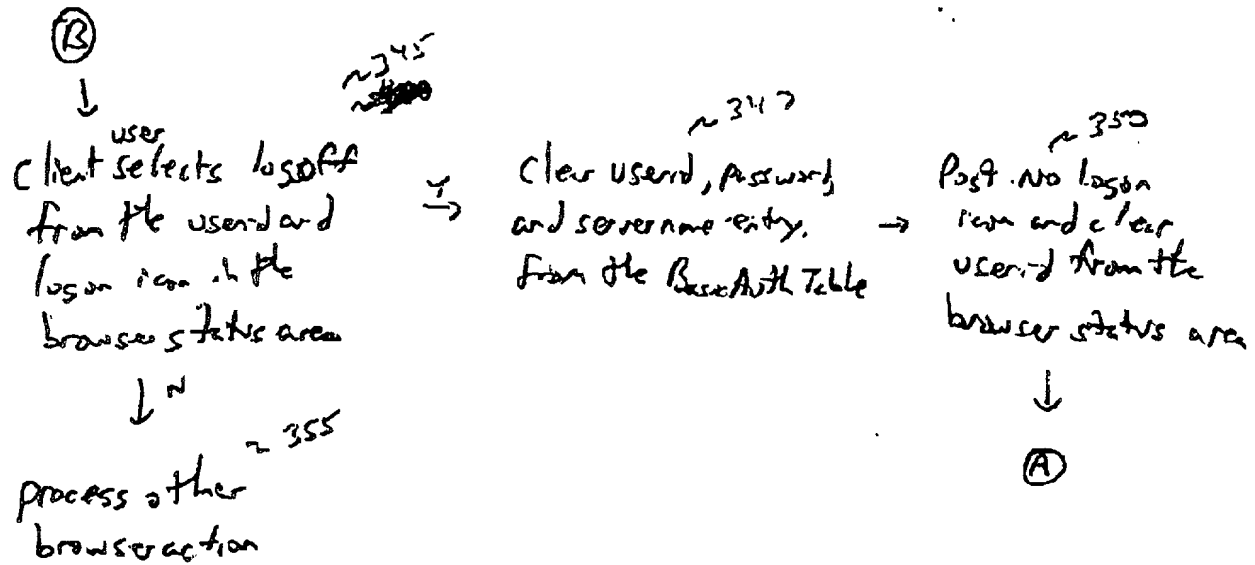 B
~345
client user selects logoff
from the userid and
logon icon in the
browser status area
Y
N
~347
Clear userid, password,
and servername entry.
from the Basic Auth Table
~350
Post No logon
icon and clear
userid from the
browser status area
A
~355
process other
browser action